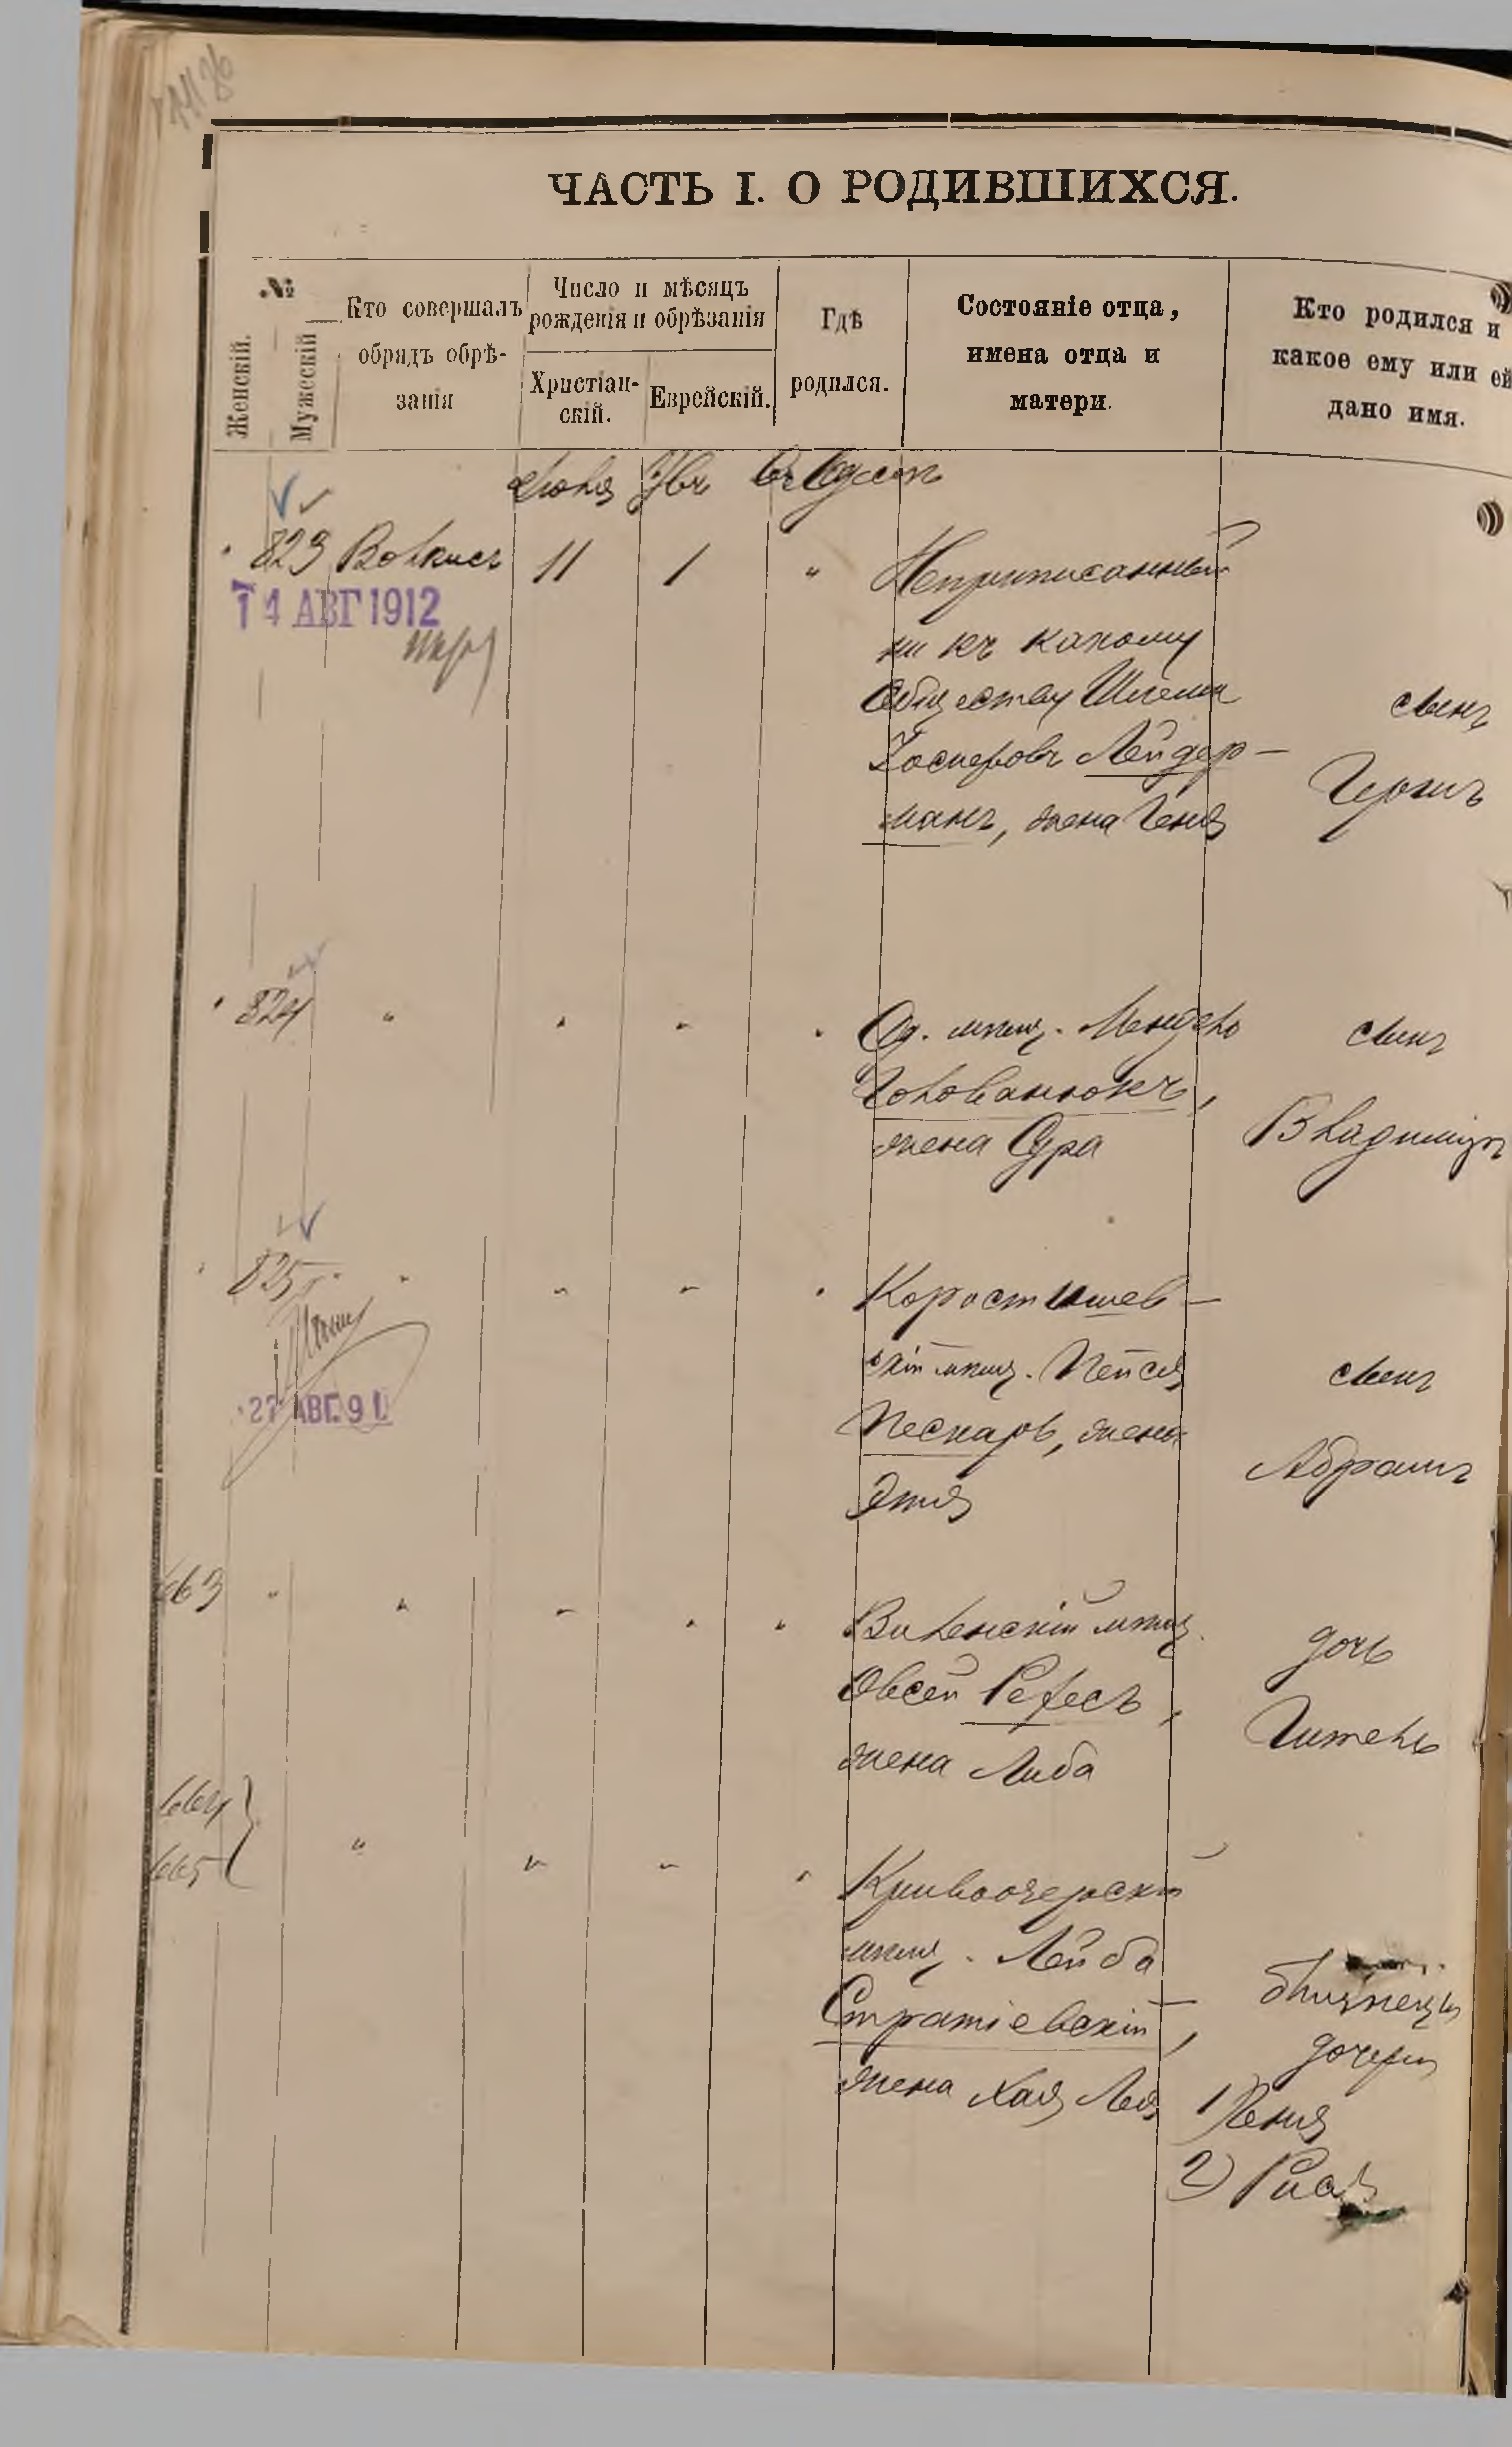 ЧАСТЬ I. О РОДИВШИХСЯ.
№
Женскій.
Мужескій
Кто совершалъ
обрядъ обрѣ-
занія
Число и мѣсяцъ
рожденія и обрѣзанія
Христіан-
скій.
Еврейскій.
Гдѣ
родился.
Состояніе отца,
имена отца и
матери.
Кто родился и
какое ему или ей
дано имя.
Іюля Овъ въ Одессѣ
823 Волкисъ 11 1 " Неприписанный
ни къ какому
обществу Шлема
Лейдер-
манъ, жена Геня
сынъ
14 АВГ 1912
824 " " " " Од. мѣщ. Мендель
Голованюкъ,
жена Сура
сынъ
Владиміръ
825 " " " " Коростышев-
скій мѣщ. Пейся
Пескарь, жена
Этя
сынъ
Абрамъ
27 АВГ. 91
663 " " " " " Виленскій мѣщ.
Овсей Рефесъ,
жена Либа
дочь
Гитель
664
665 " " " " Кривоозерскій
мѣщ. Лейба
Стратіевскій,
жена Хая Лея
близнецы
дочери
1) Геня
2)